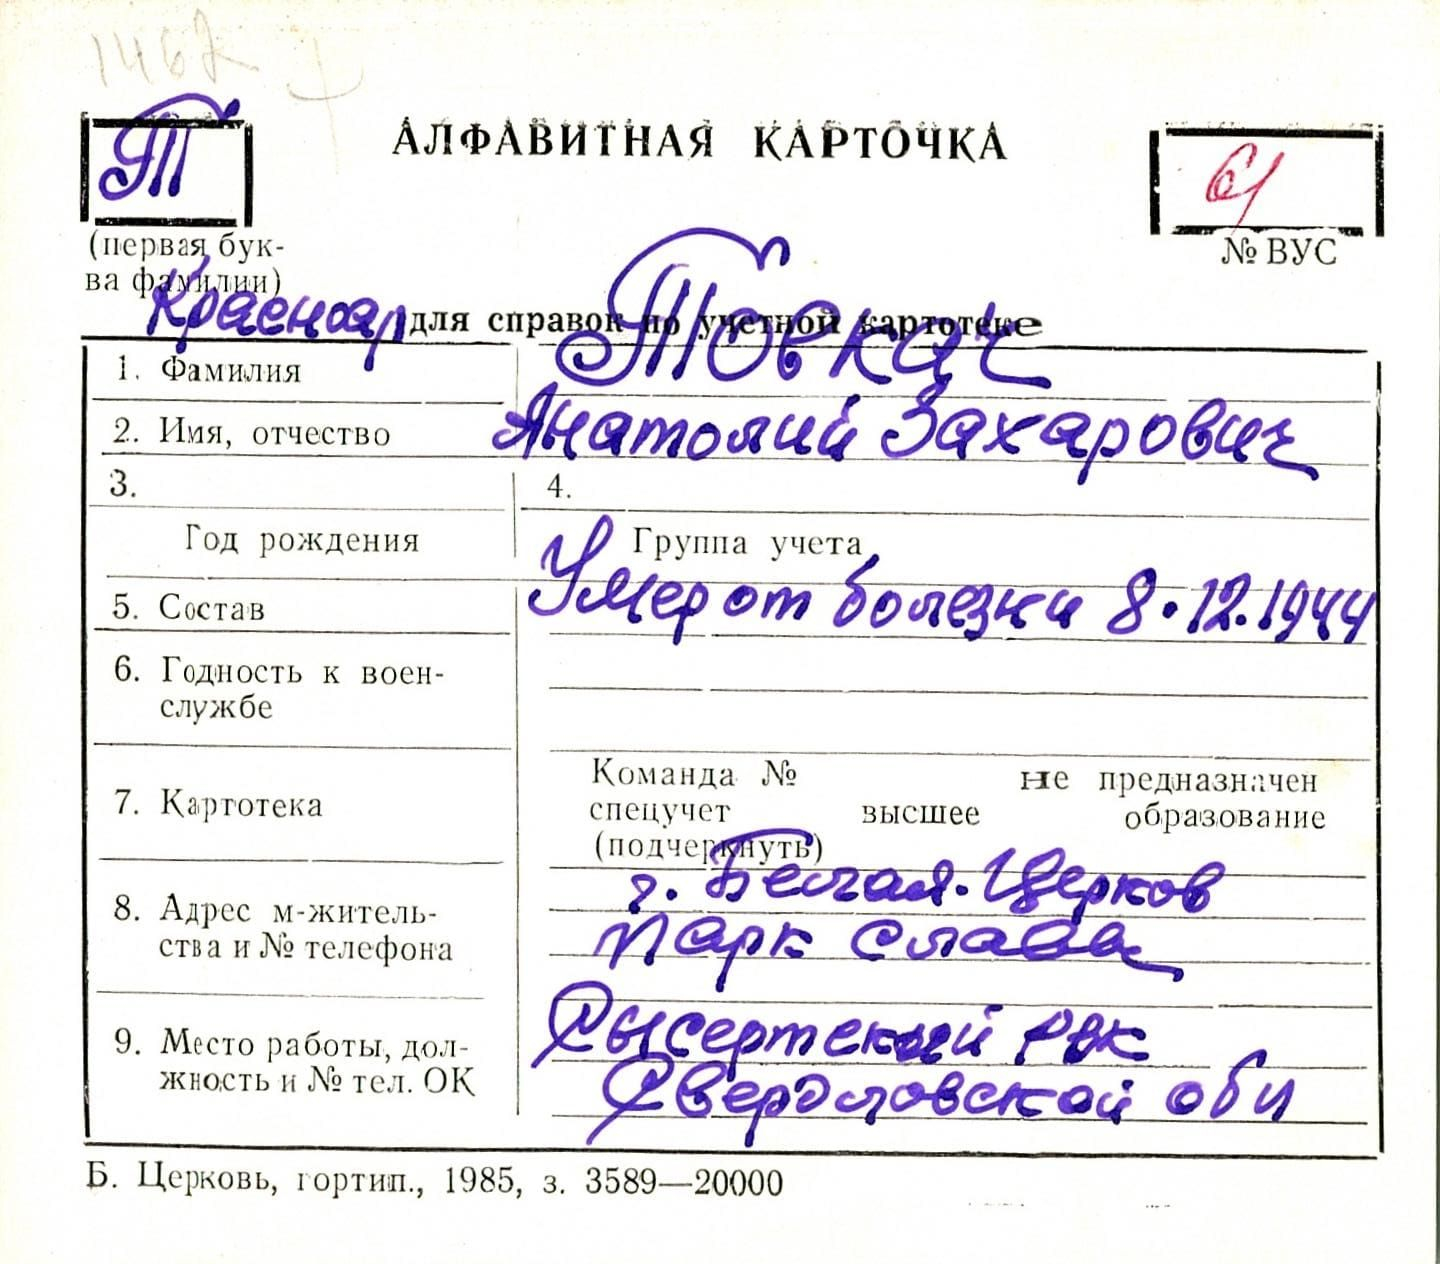 1467
Т
АЛФАВИТНАЯ КАРТОЧКА
61
(первая бук-
ва фамилии)
№ ВУС
Красноар
для справок по учетной картотеке
1. Фамилия Товкач
2. Имя, отчество Анатолий Захарович
3. 4.
Год рождения Группа учета
5. Состав Умер от болезни 8.12.1944
6. Годность к воен-
службе
Команда № не предназначен
7. Картотека спецучет высшее образование
(подчеркнуть)
г. Белая-Церков
8. Адрес м-житель- Парк Славы
ства и № телефона
9. Место работы, дол- Сысертский РВК
жность и № тел. ОК Свердловской обл
Б. Церковь, гортип., 1985, з. 3589—20000